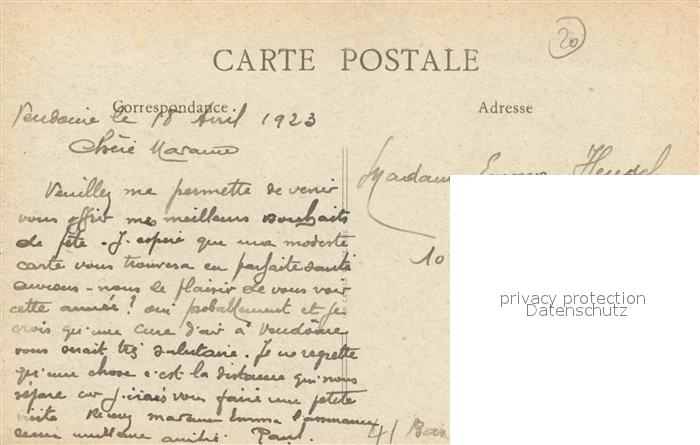 20
CARTE POSTALE
Correspondance
Adresse
Vendôme le 18 Avril 1923
Chère Marame
Veuillez me permette de venir
vous offrir mes meilleurs souhaits
de fête. J'espère que ma modeste
carte vous trouvera en parfaite santé
aurons-nous le plaisir de vous voir
cette année? oui probablement et je
crois qu'une cure d'air à Vendôme
vous serait très salutaire. Je ne regrette
qu'une chose c'est la distance qui nous
sépare car j'irais vous faire une petite
visite Recevez marame Emma l'assurance
meilleure amitié. Paul.
Madame Hendel
10
privacy protection
Datenschutz
4/ Bas